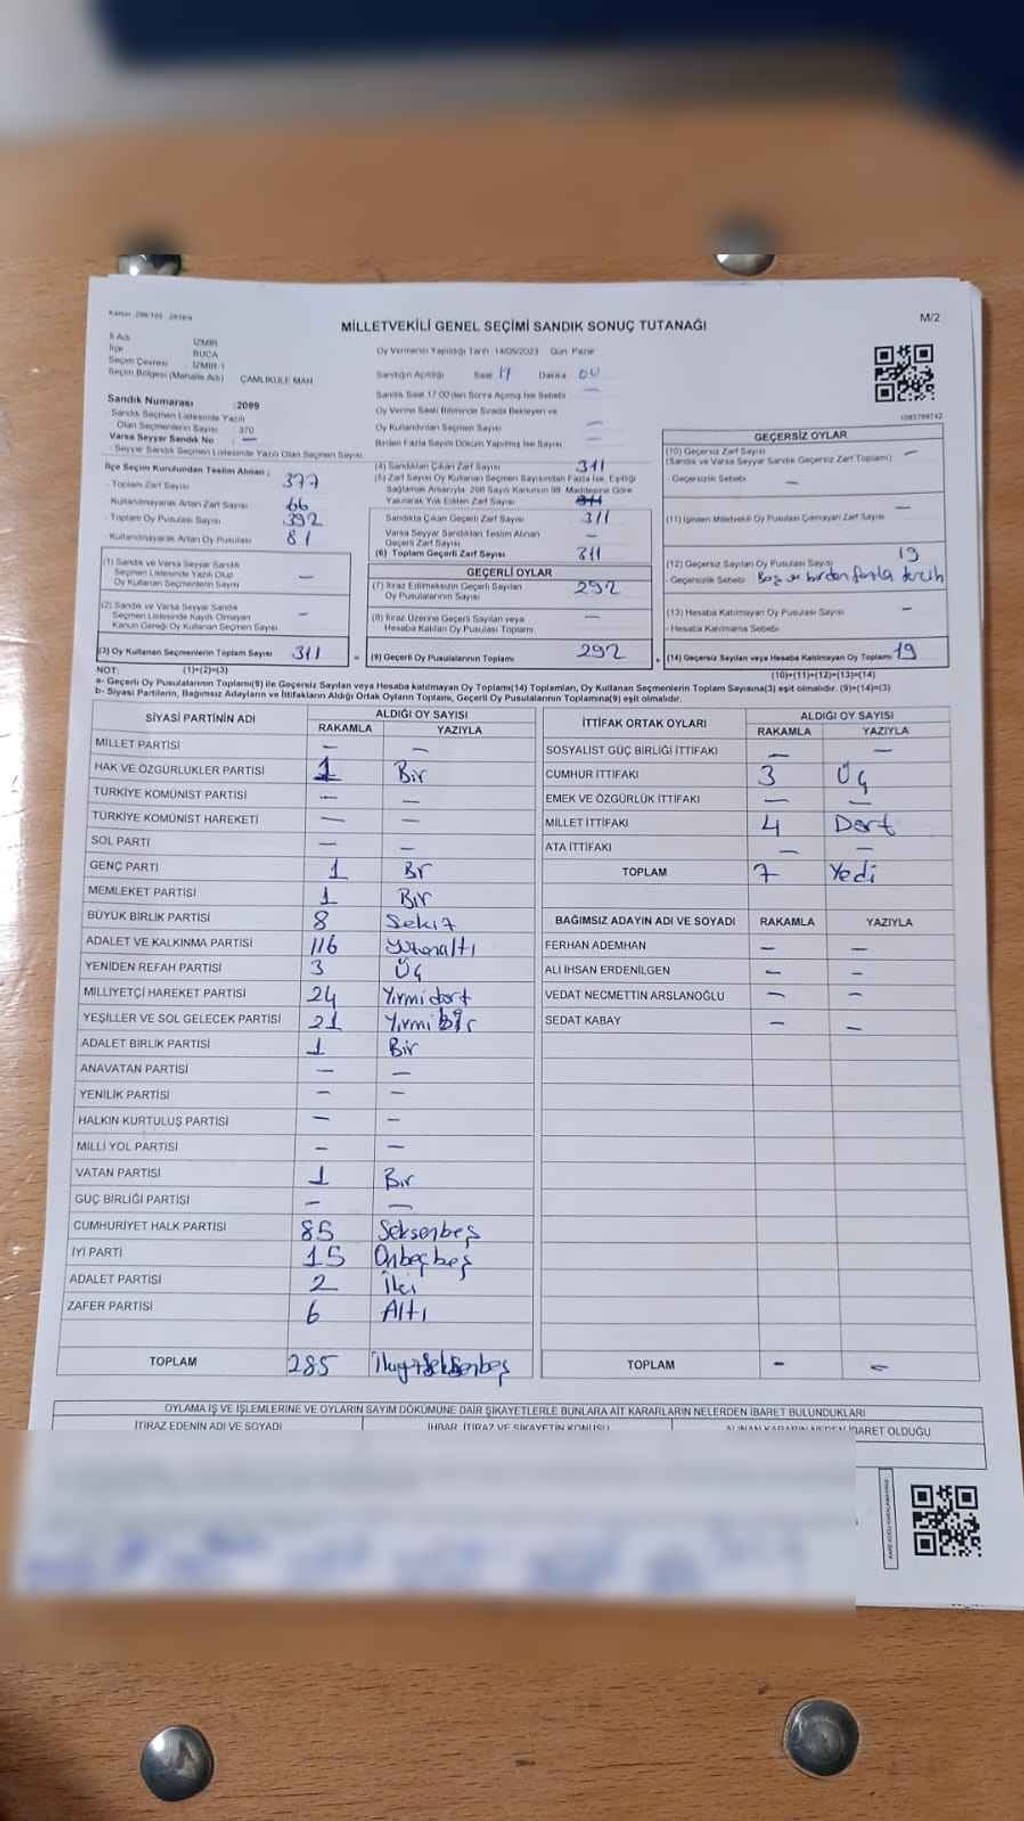 MİLLETVEKİLİ GENEL SEÇİMİ SANDIK SONUÇ TUTANAĞI
M/2
İl Adı İZMİR
İlçe BUCA
Seçim Çevresi İZMİR-1
Seçim Bölgesi (Mahalle Adı) ÇAMLIKULE MAH
Oy Vermenin Yapıldığı Tarih: 14/05/2023 Gün: Pazar
Sandığın Açıldığı Saat 17 Dakika 00
Sandık Saat 17:00'den Sonra Açılmış İse Sebebi —
Oy Verme Saati Bitiminde Sırada Bekleyen ve
Oy Kullandırılan Seçmen Sayısı —
Birden Fazla Sayım Döküm Yapılmış İse Sayısı —
Sandık Numarası :2099
Sandık Seçmen Listesinde Yazılı
Olan Seçmenlerin Sayısı 370
Varsa Seyyar Sandık No : —
Seyyar Sandık Seçmen Listesinde Yazılı Olan Seçmen Sayısı
İlçe Seçim Kurulundan Teslim Alınan :
- Toplam Zarf Sayısı 377
Kullanılmayarak Artan Zarf Sayısı 66
- Toplam Oy Pusulası Sayısı 392
Kullanılmayarak Artan Oy Pusulası 81
(1) Sandık ve Varsa Seyyar Sandık
Seçmen Listesinde Yazılı Olup
Oy Kullanan Seçmenlerin Sayısı —
(2) Sandık ve Varsa Seyyar Sandık
Seçmen Listesinde Kaydı Olmayan
Kanun Gereği Oy Kullanan Seçmen Sayısı —
(3) Oy Kullanan Seçmenlerin Toplam Sayısı 311
(4) Sandıktan Çıkan Zarf Sayısı 311
(5) Zarf Sayısı Oy Kullanan Seçmen Sayısından Fazla İse, Eşitliği
Sağlamak Amacıyla, 298 Sayılı Kanunun 98. Maddesine Göre
Yakılarak Yok Edilen Zarf Sayısı
Sandıkta Çıkan Geçerli Zarf Sayısı 311
Varsa Seyyar Sandıktan Teslim Alınan
Geçerli Zarf Sayısı —
(6) Toplam Geçerli Zarf Sayısı 311
GEÇERLİ OYLAR
(7) İtiraz Edilmeksizin Geçerli Sayılan
Oy Pusulalarının Sayısı 292
(8) İtiraz Üzerine Geçerli Sayılan veya
Hesaba Katılan Oy Pusulası Toplamı —
(9) Geçerli Oy Pusulalarının Toplamı 292
GEÇERSİZ OYLAR
(10) Geçersiz Zarf Sayısı —
(Sandık ve Varsa Seyyar Sandık Geçersiz Zarf Toplamı)
- Geçersizlik Sebebi —
(11) İçinden Milletvekili Oy Pusulası Çıkmayan Zarf Sayısı —
(12) Geçersiz Sayılan Oy Pusulası Sayısı 19
- Geçersizlik Sebebi Boş ve birden fazla tercih
(13) Hesaba Katılmayan Oy Pusulası Sayısı —
- Hesaba Katılmama Sebebi
(14) Geçersiz Sayılan veya Hesaba Katılmayan Oy Toplamı 19
NOT: (1)+(2)=(3) (10)+(11)+(12)+(13)=(14)
a- Geçerli Oy Pusulalarının Toplamı(9) ile Geçersiz Sayılan veya Hesaba katılmayan Oy Toplamı(14) Toplamları, Oy Kullanan Seçmenlerin Toplam Sayısına(3) eşit olmalıdır. (9)+(14)=(3)
b- Siyasi Partilerin, Bağımsız Adayların ve İttifakların Aldığı Ortak Oyların Toplamı, Geçerli Oy Pusulalarının Toplamına(9) eşit olmalıdır.
SİYASİ PARTİNİN ADI ALDIĞI OY SAYISI
RAKAMLA YAZIYLA
MİLLET PARTİSİ — —
HAK VE ÖZGÜRLÜKLER PARTİSİ 1 Bir
TÜRKİYE KOMÜNİST PARTİSİ — —
TÜRKİYE KOMÜNİST HAREKETİ — —
SOL PARTİ — —
GENÇ PARTİ 1 Br
MEMLEKET PARTİSİ 1 Bir
BÜYÜK BİRLİK PARTİSİ 8 Sekiz
ADALET VE KALKINMA PARTİSİ 116 Yüzonaltı
YENİDEN REFAH PARTİSİ 3 Üç
MİLLİYETÇİ HAREKET PARTİSİ 24 Yirmidört
YEŞİLLER VE SOL GELECEK PARTİSİ 21 Yirmi bir
ADALET BİRLİK PARTİSİ 1 Bir
ANAVATAN PARTİSİ — —
YENİLİK PARTİSİ — —
HALKIN KURTULUŞ PARTİSİ — —
MİLLİ YOL PARTİSİ — —
VATAN PARTİSİ 1 Bir
GÜÇ BİRLİĞİ PARTİSİ — —
CUMHURİYET HALK PARTİSİ 85 Seksenbeş
İYİ PARTİ 15 Onbeşbeş
ADALET PARTİSİ 2 İki
ZAFER PARTİSİ 6 Altı
TOPLAM 285 İkiyüzseksenbeş
İTTİFAK ORTAK OYLARI ALDIĞI OY SAYISI
RAKAMLA YAZIYLA
SOSYALİST GÜÇ BİRLİĞİ İTTİFAKI — —
CUMHUR İTTİFAKI 3 Üç
EMEK VE ÖZGÜRLÜK İTTİFAKI — —
MİLLET İTTİFAKI 4 Dört
ATA İTTİFAKI — —
TOPLAM 7 Yedi
BAĞIMSIZ ADAYIN ADI VE SOYADI RAKAMLA YAZIYLA
FERHAN ADEMHAN — —
ALİ İHSAN ERDENİLGEN — —
VEDAT NECMETTİN ARSLANOĞLU — —
SEDAT KABAY — —
TOPLAM — —
OYLAMA İŞ VE İŞLEMLERİNE VE OYLARIN SAYIM DÖKÜMÜNE DAİR ŞİKAYETLERLE BUNLARA AİT KARARLARIN NELERDEN İBARET BULUNDUKLARI
İTİRAZ EDENİN ADI VE SOYADI İHBAR, İTİRAZ VE ŞİKAYETİN KONUSU ALINAN KARARIN NEDEN İBARET OLDUĞU